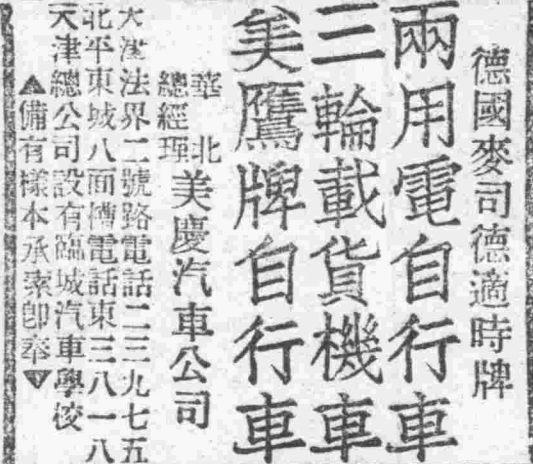 德國麥司德適時牌
兩用電自行車
三輪載貨機車
美鷹牌自行車
華北
總經理
美慶汽車公司
天津法界二號路電話二三九七五
北平東城八面槽電話東三八一八
天津總公司設有臨城汽車學校
▲備有樣本承索卽奉▼